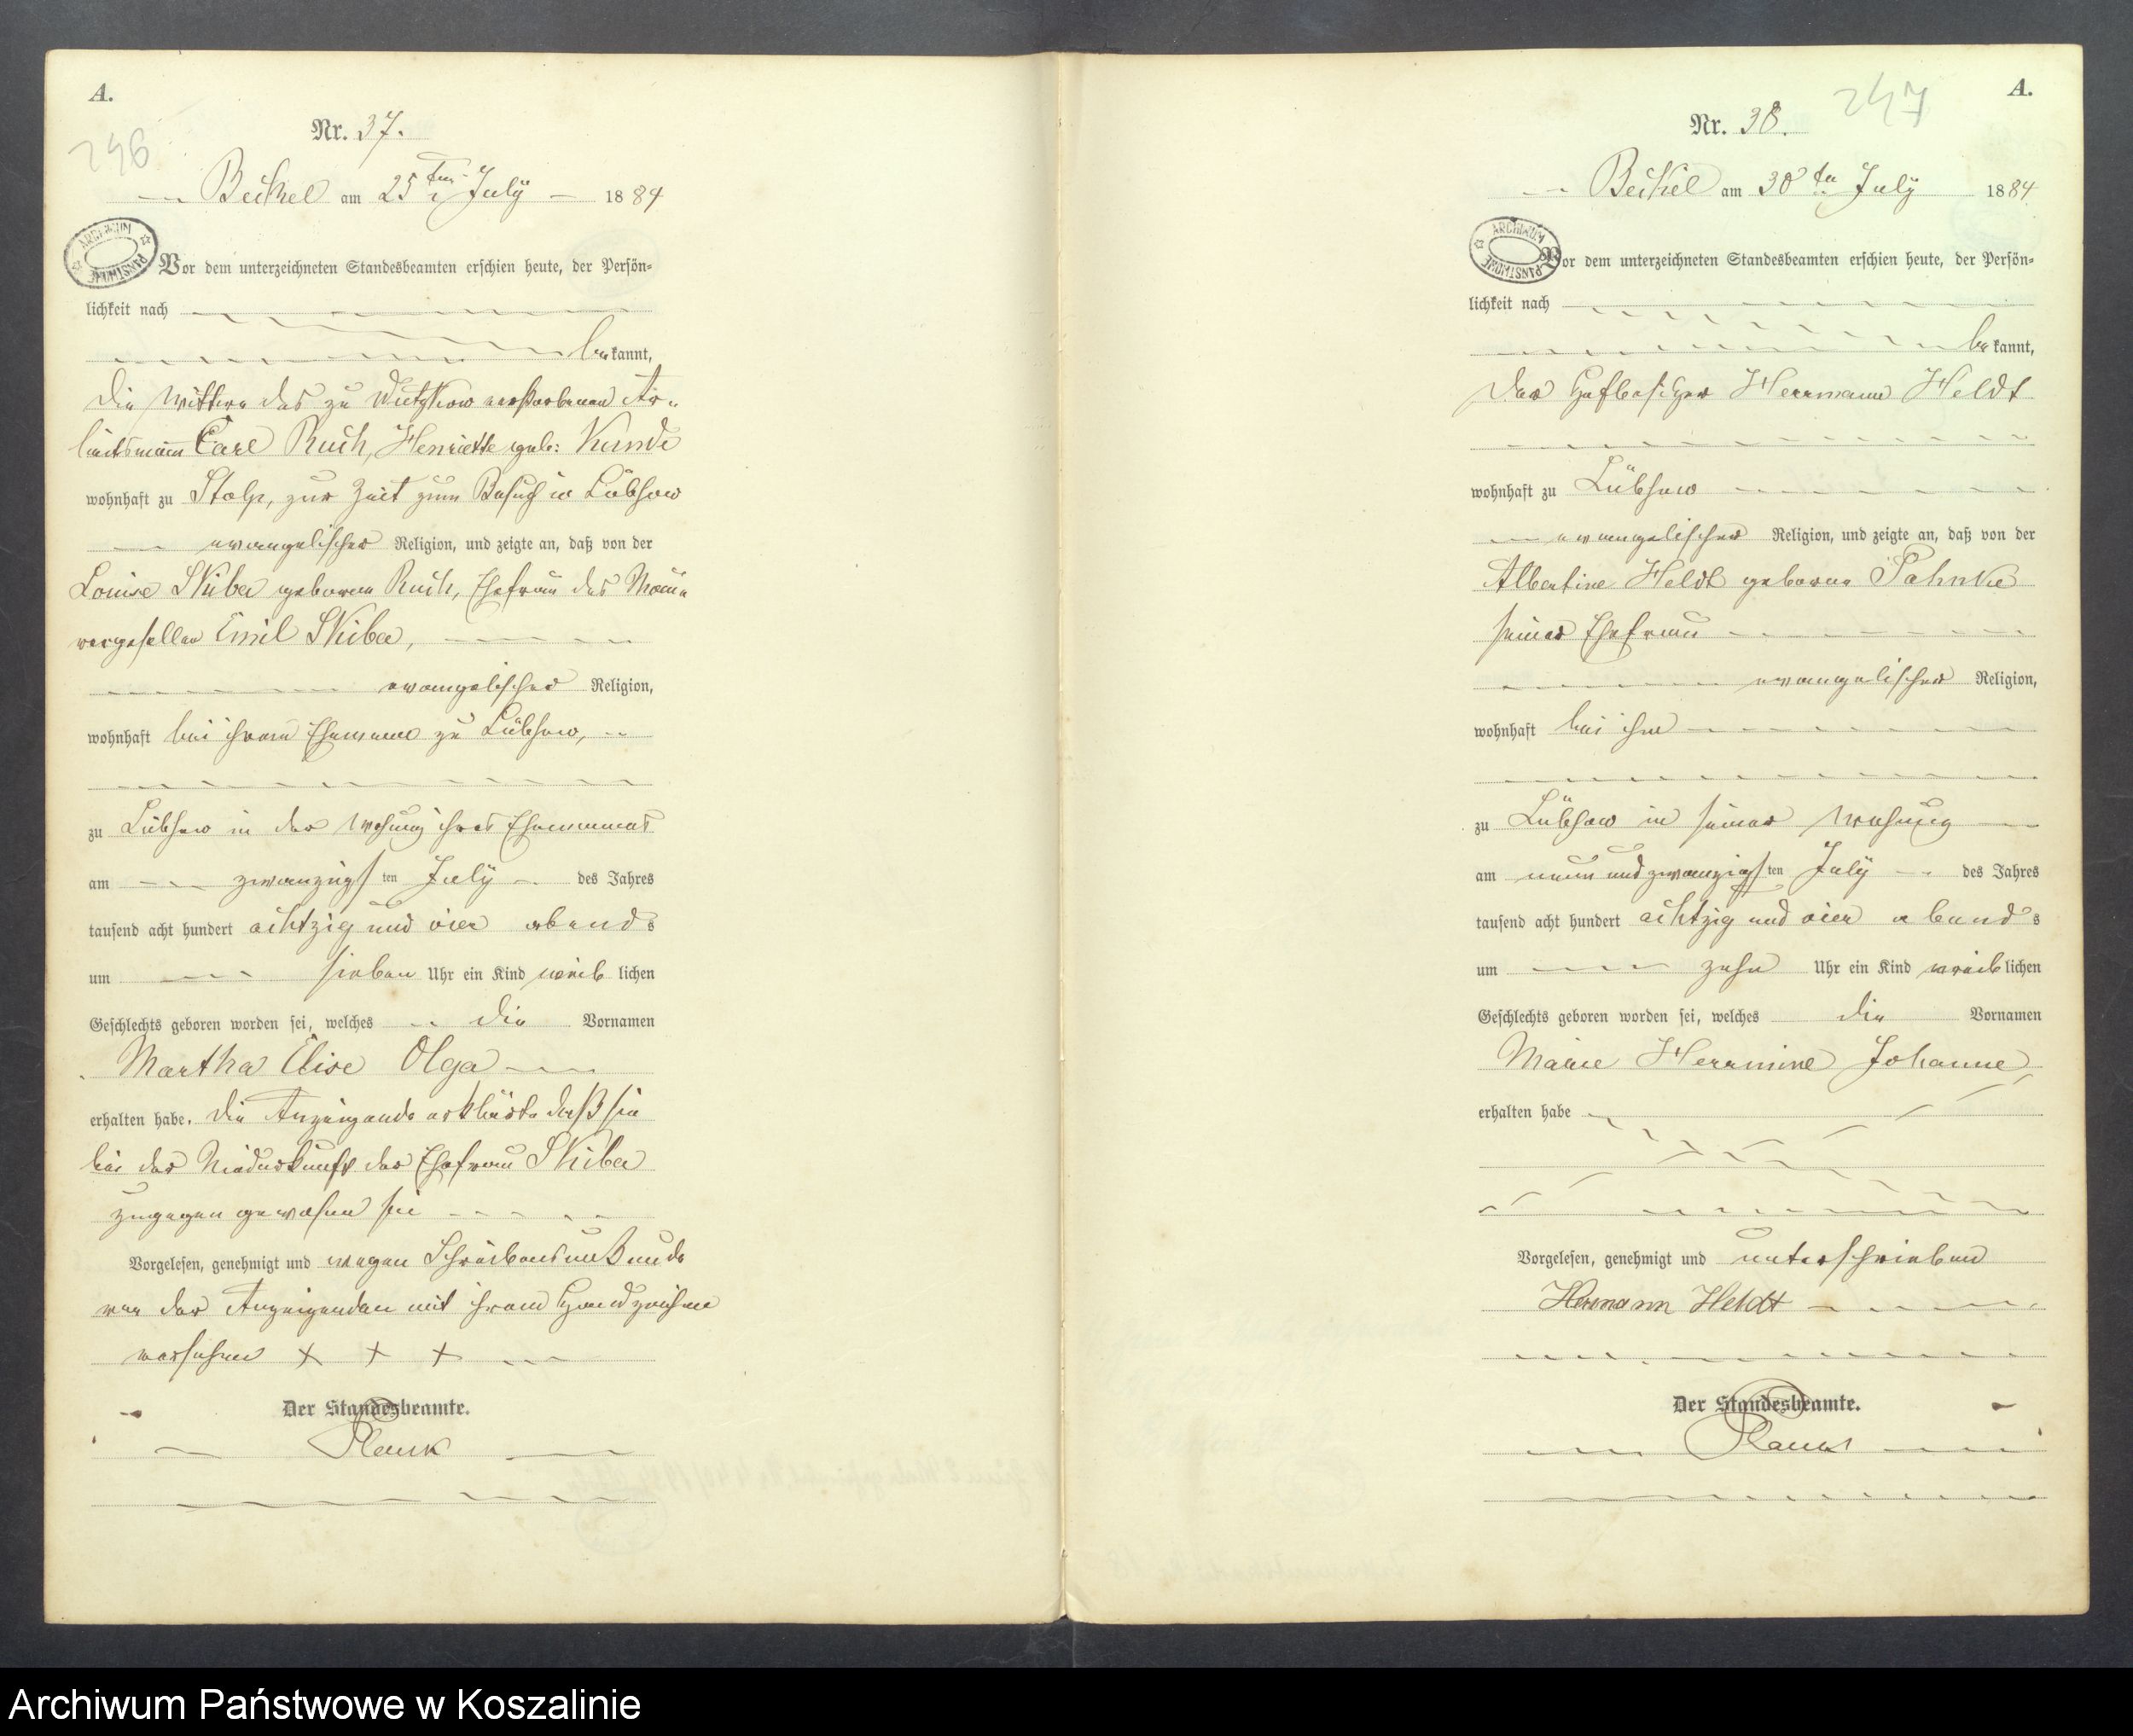 A.
246
Nr. 37.
Beckel am 25ten July 1884
ARCHIWUM PAŃSTWOWE
Vor dem unterzeichneten Standesbeamten erschien heute, der Persön-
lichkeit nach
bekannt,
die Wittwe des zu Wutzkow verstorbenen Ar-
beitsmann Carl Ruch, Henriette geb: Kunde
wohnhaft zu Stolp, zur Zeit zum Besuch in Lübsow
evangelischer Religion, und zeigte an, daß von der
Louise Skiba geborene Ruch, Ehefrau des Mau-
rergesellen Emil Skiba,
evangelischer Religion,
wohnhaft bei ihrem Ehemann zu Lübsow,
zu Lübsow in der Wohung ihres Ehemannes
am zwanzigsten July des Jahres
tausend acht hundert achtzig und vier abends
um sieben Uhr ein Kind weiblichen
Geschlechts geboren worden sei, welches die Vornamen
Martha Elise Olga
erhalten habe. Die Anzeigende erklärte daß sie
bei der Niederkunft der Ehefrau Skiba
zugegen gewesen sei
Vorgelesen, genehmigt und wegen Schreibensunkunde
von der Anzeigenden mit ihrem Handzeichen
versehen + + +
Der Standesbeamte.
Plank
A.
247
Nr. 38.
Beckel am 30ten July 1884
ARCHIWUM PAŃSTWOWE
Vor dem unterzeichneten Standesbeamten erschien heute, der Persön-
lichkeit nach
bekannt,
der Hofbesitzer Herrmann Heldt
wohnhaft zu Lübsow
evangelischer Religion, und zeigte an, daß von der
Albertine Heldt geborene Pahnke
seiner Ehefrau
evangelischer Religion,
wohnhaft bei ihm
zu Lübsow in seiner Wohung
am neun und zwanzigsten July des Jahres
tausend acht hundert achtzig und vier abends
um zehn Uhr ein Kind weiblichen
Geschlechts geboren worden sei, welches die Vornamen
Marie Herrmine Johanne
erhalten habe
Vorgelesen, genehmigt und unterschrieben
Hermann Heldt
Der Standesbeamte.
Plank
Archiwum Państwowe w Koszalinie